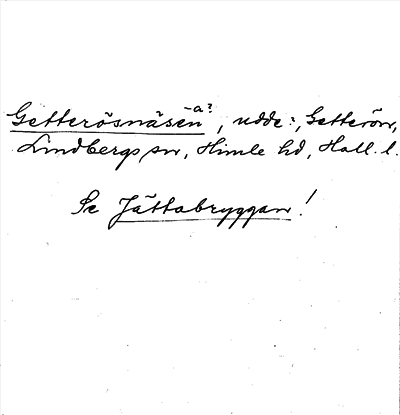 -a?
Getterösnäsen, udde:, Getterön,
Lindbergs sn, Himle hd, Hall. l.
Se Jättabryggan!